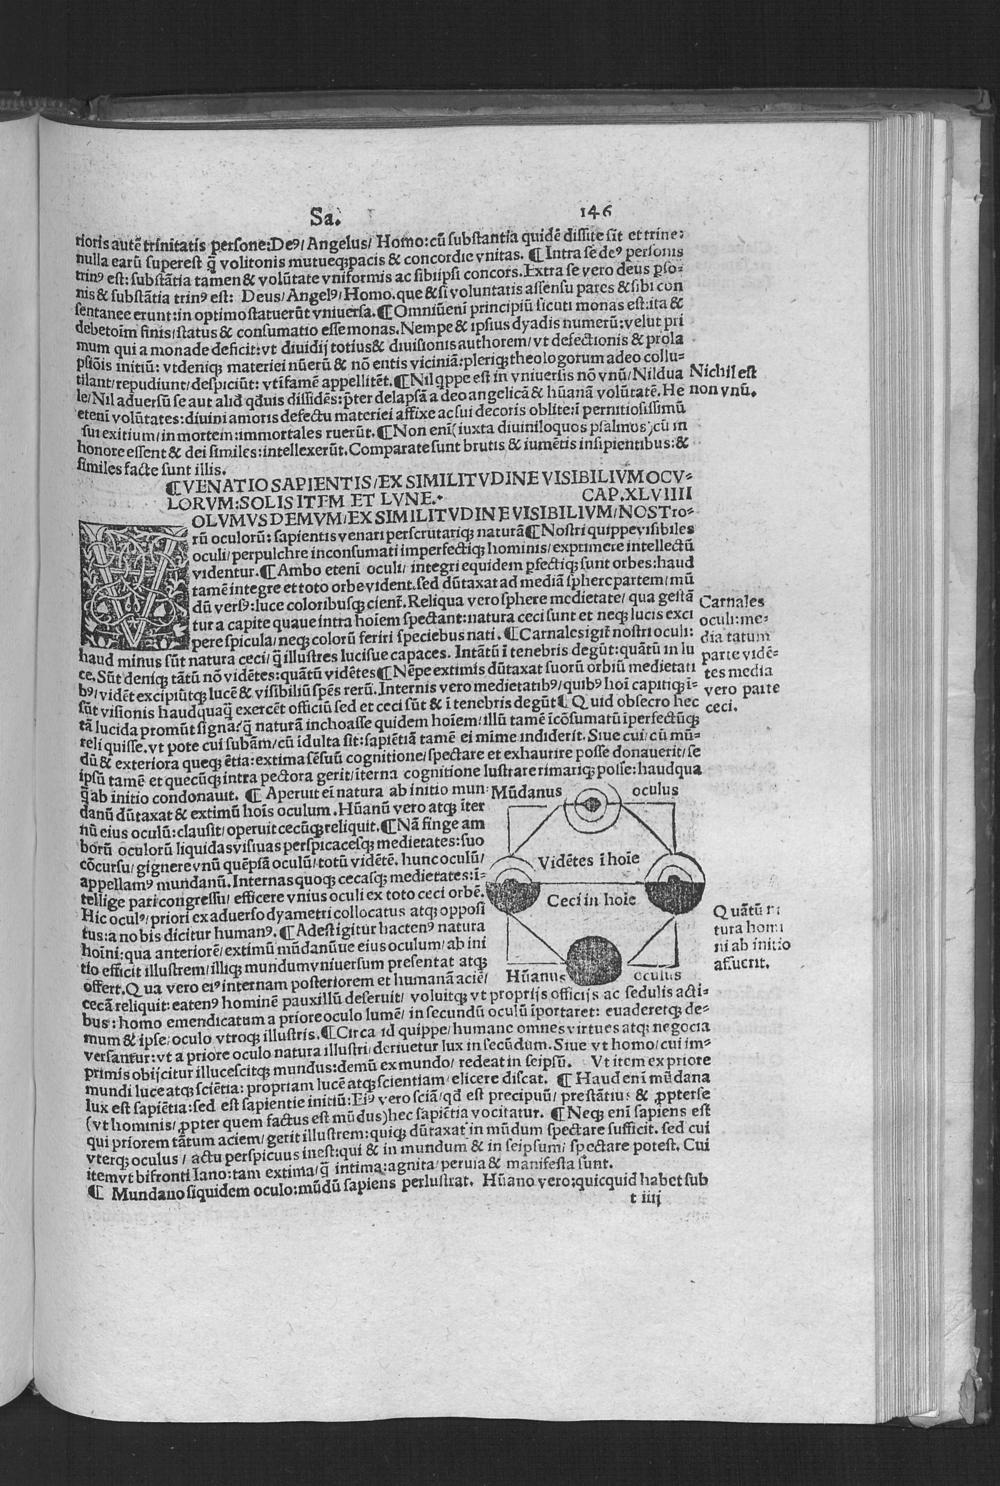 Sa. 146
rioris autē trinitatis persone: Deꝰ/ Angelus/ Homo: cū substantia quidē dissite sīt et trine:
nulla earū superest q̄ volitonis mutueqꝫ pacis & concordie vnitas. ¶ Intra se deꝰ personis
trinꝰ est: substātia tamen & volūtate vniformis ac sibiipsi concors. Extra se vero deus ꝑso⸗
nis & substātia trinꝰ est: Deus/ Angelꝰ/ Homo. que & si voluntatis assensu pares & sibi con
sentanee erunt: in optimo statuerūt vniuersa. ¶ Omniū enī principiū sicuti monas est: ita &
debet oīm finis/ status & consumatio esse monas. Nempe & ipsius dyadis numerū: velut pri
mum qui a monade deficit: vt diuidij totius & diuisionis authorem/ vt defectionis & prola
psiōis initiū: vt deniqꝫ materiei nūerū & nō entis viciniā: pleriqꝫ theologorum adeo collu⸗
tilant/ repudiunt/ despiciūt: vt īfamē appellitēt. ¶ Nil qppe est in vniuersis nō vnū/ Nil dua
le/ Nil aduersū se aut alid qduis dissidēs: p̄ter delapsā a deo angelicā & hūanā volūtatē. He
etenī volūtates: diuini amoris defectu materiei affixe ac sui decoris oblite: ī pernitiosissimū
sui exitium/ in mortem: immortales ruerūt. ¶ Non enī (iuxta diuiniloquos psalmos) cū in
honore essent & dei similes: intellexerūt. Comparate sunt brutis & iumētis insipientibus: &
similes facte sunt illis.
Nichil est
non vnū.
¶ VENATIO SAPIENTIS/ EX SIMILITVDINE VISIBILIVM OCV⸗
LORVM: SOLIS ITEM ET LVNE. CAP. XLVIIII
VOLVMVS DEMVM/ EX SIMILITVDINE VISIBILIVM/ NOSTro⸗
rū oculorū: sapientis venari perscrutariqꝫ naturā ¶ Nostri quippe visibiles
oculi/ perpulchre inconsumati imperfectiqꝫ hominis/ exprimere intellectū
videntur. ¶ Ambo etenī oculi/ integri equidem ꝑfectiqꝫ sunt orbes: haud
tamē integre et toto orbe vident. sed dūtaxat ad mediā sphere partem/ mū
dū versꝰ: luce coloribusqꝫ cient̄. Reliqua vero sphere medietate/ qua gestā
tur a capite quaue intra hoīem spectant: natura ceci sunt et neqꝫ lucis exci
pere spicula/ neqꝫ colorū feriri speciebus nati. ¶ Carnales igit̄ nostri oculi:
haud minus sūt natura ceci/ q̄ illustres lucisue capaces. Intātū ī tenebris degūt: quātū in lu
ce. Sūt deniqꝫ tātū nō vidētes: quātū vidētes ¶ Nēpe extimis dūtaxat suorū orbiū medietati
bꝰ/ vidēt excipiūtqꝫ lucē & visibiliū spēs rerū. Internis vero medietatibꝰ/ quibꝰ hoī capitiqꝫ ī⸗
sūt visionis haudquaq̄ exercēt officiū sed et ceci sūt & ī tenebris degūt ¶ Quid obsecro hec
tā lucida promūt signa? q̄ naturā inchoasse quidem hoīem/ illū tamē īcōsumatū īperfectūqꝫ
reliquisse. vt pote cui subām/ cū idulta sit: sapiētiā tamē ei mime indiderit. Siue cui/ cū mū⸗
dū & exteriora queqꝫ ētia: extima sēsuū cognitione/ spectare et exhaurire posse donauerit/ se
ipsū tamē et quecūqꝫ intra pectora gerit/ īterna cognitione lustrare rimariqꝫ posse: haudqua
q̄ ab initio condonauit. ¶ Aperuit ei natura ab initio mun
danū dūtaxat & extimū hoīs oculum. Hūanū vero atqꝫ iter
nū eius oculū: clausit/ operuit cecūqꝫ reliquit. ¶ Nā finge am
borū oculorū liquidas visiuas perspicacesqꝫ medietates: suo
cōcursu/ gignere vnū quēpiā oculū/ totū vidētē. hunc oculū/
appellamꝰ mundanū. Internas quoqꝫ cecasqꝫ medietates: ī⸗
tellige pari congressu/ efficere vnius oculi ex toto ceci orbē.
Hic oculꝰ/ priori ex aduerso dyametri collocatus atqꝫ opposi
tus: a nobis dicitur humanꝰ. ¶ Adest igitur hactenꝰ natura
hoīni: qua anteriorē/ extimū mūdanūue eius oculum/ ab ini
tio efficit illustrem/ illiqꝫ mundum vniuersum presentat atqꝫ
offert. Qua vero eiꝰ internam posteriorem et humanā aciē/
cecā reliquit: eatenꝰ hominē pauxillū deseruit/ voluitqꝫ vt proprijs officijs ac sedulis acti⸗
bus: homo emendicatum a priore oculo lumē/ in secundū oculū īportaret: euaderetqꝫ de⸗
mum & ipse/ oculo vtroqꝫ illustris. ¶ Circa id quippe/ humane omnes virtues atqꝫ negocia
versantur: vt a priore oculo natura illustri/ deriuetur lux in secūdum. Siue vt homo/ cui im⸗
primis obijcitur illucescitqꝫ mundus: demū ex mundo/ redeat in seipsū. Vt item ex priore
mundi luce atqꝫ sciētia: propriam lucē atqꝫ scientiam/ elicere discat. ¶ Haud enī mūdana
lux est sapiētia: sed est sapientie initiū: Eiꝰ vero sciā/ qd est precipuū/ prestātius & ꝓpter se
(vt hominis/ ꝓpter quem factus est mūdus) hec sapiētia vocitatur. ¶ Neqꝫ enī sapiens est
qui priorem tātum aciem/ gerit illustrem: quiqꝫ dūtaxat in mūdum spectare sufficit. sed cui
vterqꝫ oculus / actu perspicuus inest: qui & in mundum & in seipsum/ spectare potest. Cui
item vt bifronti Iano: tam extima/ q̄ intima: agnita/ peruia & manifesta sunt.
¶ Mundano siquidem oculo: mūdū sapiens perlustrat. Hūano vero: quicquid habet sub
t iiij
Carnales
oculi: me⸗
dia tatum
parte vidē⸗
tes media
vero parte
ceci.
Mūdanus oculus
Vidētes ī hoīe
Ceci in hoīe
Hūanus oculus
Quātū
tura homi
ni ab initio
affuerit.